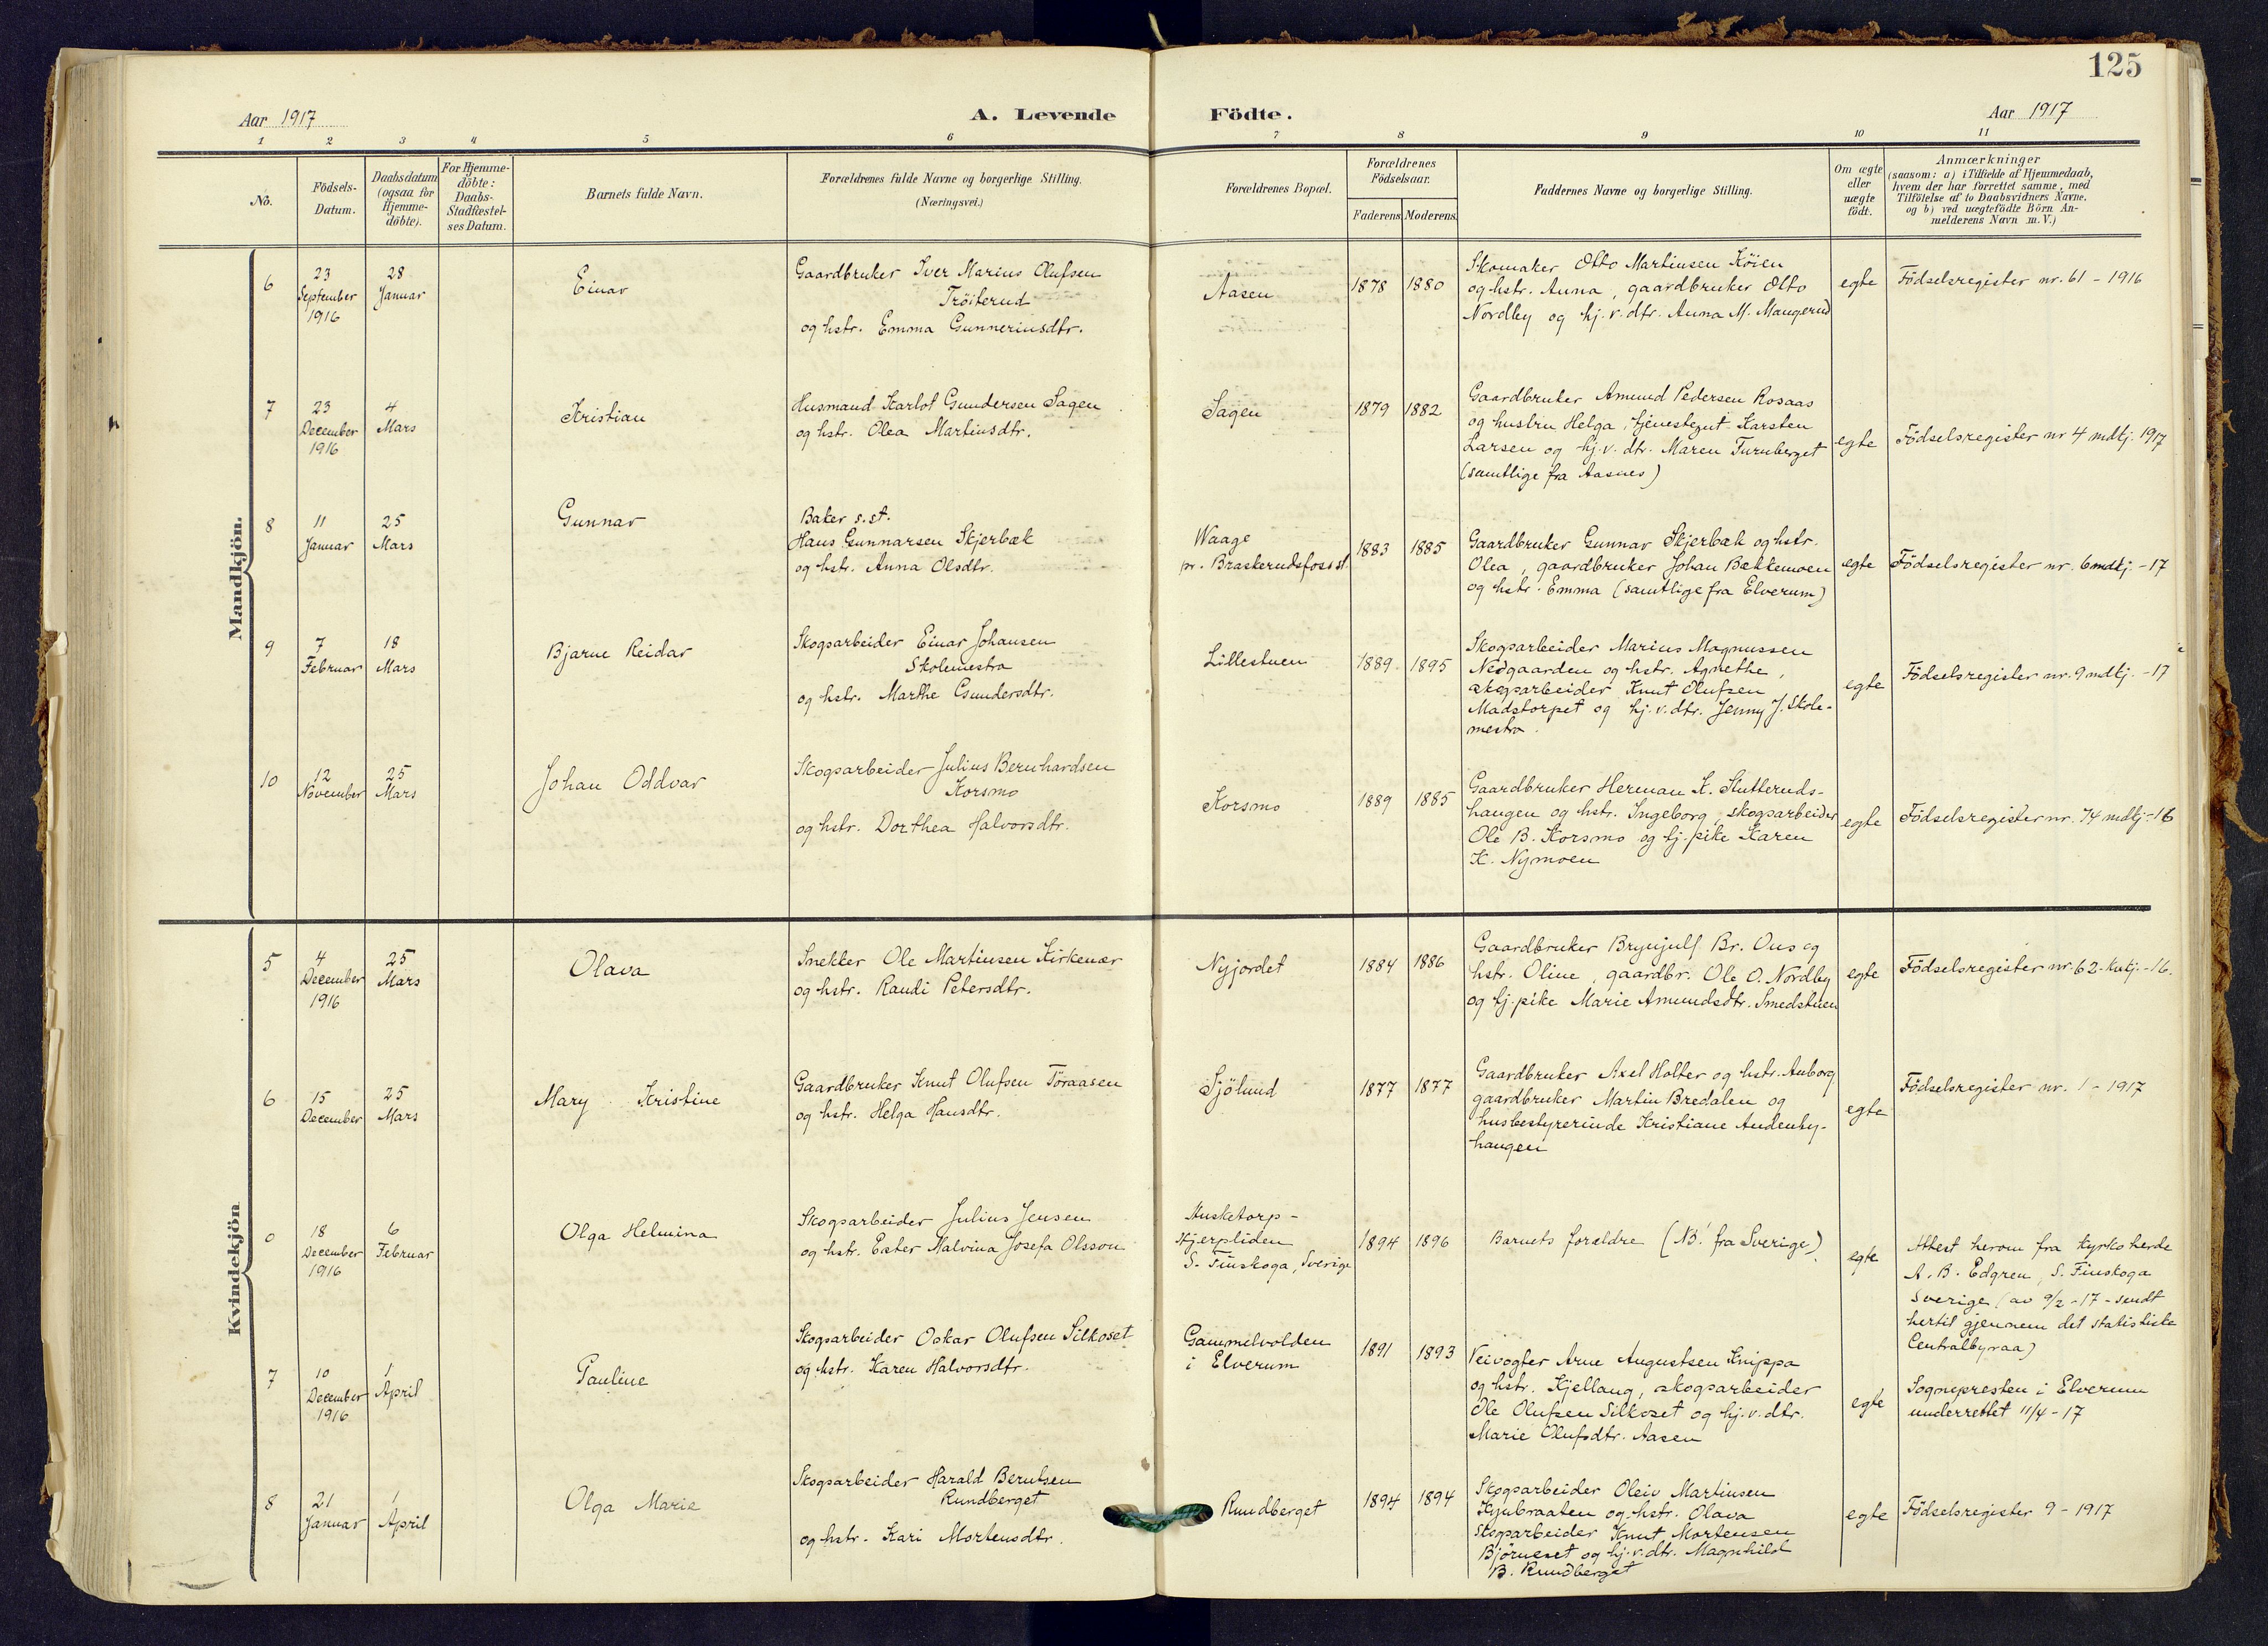 125
Aar 1917
A. Levende Födte.
Aar 1917
1 2 3 4 5 6 7 8 9 10 11
No.
Födsels-
Datum.
Daabsdatum
(ogsaa for
Hjemme-
döbte).
For Hjemme-
döbte:
Daabs-
Stadfæstel-
ses Datum.
Barnets fulde Navn.
Forældrenes fulde Navne og borgerlige Stilling.
(Næringsvei.)
Forældrenes Bopæl.
Forældrenes
Födselsaar.
Faderens. Moderens.
Faddernes Navne og borgerlige Stilling.
Om ægte
eller
uægte
födt.
Anmærkninger
(saasom: a) i Tilfælde af Hjemmedaab,
hvem der har forrettet samme, med
Tilföielse af to Daabsvidners Navne.
og b) ved uægtefödte Börn An-
melderens Navn m. V.)
Mandkjön.
6
23
September
1916
28
Januar
Einar
Gaardbruker Iver Marius Olufsen
Tröiterud
og hstr. Emma Gunneriusdtr.
Aasen
1878
1880
Skomaker Otto Martinsen Köien
og hstr. Anna, gaardbruker Otto
Nordby og hj.v.dtr. Anna M. Maugerud
egte
Födselsregister nr. 61 - 1916
7
23
December
1916
4
Mars
Kristian
Husmand Karlot Gundersen Sagen
og hstr. Olea Martinsdtr.
Sagen
1879
1882
Gaardbruker Amund Pedersen Rosaas
og hustru Helga, tjenestegut Karsten
Larsen og hj.v.dtr. Maren Furuberget
(samtlige fra Aasnes)
egte
Födselsregister nr 4 mdkj. 1917
8
11
Januar
25
Mars
Gunnar
Baker s.st.
Hans Gunnarsen Skjerbæk
og hstr. Anna Olsdtr.
Waage
pr. Braskerudsfoss st.
1883
1885
Gaardbruker Gunnar Skjerbæk og hstr.
Olea, gaardbruker Johan Bækkemoen
og hstr. Emma (samtlige fra Elverum)
egte
Födselsregister nr. 6 mdkj. -17
9
7
Februar
18
Mars
Bjarne Reidar
Skogsarbeider Einar Johansen
Skolemestra
og hstr. Marthe Gundersdtr.
Lillestuen
1889
1895
Skogsarbeider Marius Magnussen
Nedgaarden og hstr. Agnethe,
skogsarbeider Knut Olufsen
Madstorpet og hj.v.dtr. Jenny J. Skole-
mestra.
egte
Födselsregister nr. 9 mdkj. -17
10
12
November
25
Mars
Johan Oddvar
Skogsarbeider Julius Bernhardsen
Korsmo
og hstr. Dorthea Halvorsdtr.
Korsmo
1889
1885
Gaardbruker Herman K. Slutteruds-
haugen og hstr. Ingeborg, skogsarbeider
Ole B. Korsmo og tj.pike Karen
K. Nymoen
egte
Födselsregister nr. 74 mdkj.-16
Kvindekjön
5
4
December
1916
25
Mars
Olava
Snekker Ole Martinsen Kirkenær
og hstr. Randi Petersdtr.
Nyjordet
1884
1886
Gaardbruker Brynjulf Br. Ous og
hstr. Oline, gaardbr. Ole O. Nordby
og tj.pike Marie Amundsdtr. Smedstuen
egte
Födselsregister nr. 62-kvkj.-16.
6
15
December
25
Mars
Mary Kristine
Gaardbruker Knut Olufsen Töraasen
og hstr. Helga Hansdtr.
Sjölund
1877
1877
Gaardbruker Axel Holter og hstr. Anborg
gaardbruker Martin Bredalen og
husbestyrerinde Kristiane Audenby-
haugen
egte
Födselsregister nr. 1 - 1917
0
18
December
1916
6
Februar
Olga Helmina
Skogsarbeider Julius Jensen
og hstr. Ester Malvina Josefa Olsson
Husketorp-
Hjerpliden
S. Finskoga, Sverige
1894
1896
Barnets forældre (NB! fra Sverige)
egte
Attest herom fra kyrkoherde
A. B. Edgren, S. Finskoga
Sverige (av 9/2 -17 - sendt
hertil gjennem det statistiske
Centralbyraa)
7
10
December
1916
1
April
Pauline
Skogsarbeider Oskar Olufsen Silkoset
og hstr. Karen Halvorsdtr.
Gammelvolden
i Elverum
1891
1893
Veivogter Arne Augustsen Knippa
og hstr. Kjellaug, skogsarbeider
Ole Olufsen Silkoset og hj.v.dtr.
Marie Olufsdtr. Aasen
egte
Sognepresten i Elverum
underrettet 11/4 -17
8
21
Januar
1
April
Olga Marie
Skogsarbeider Harald Berntsen
Rundberget
og hstr. Kari Mortensdtr.
Rundberget
1894
1894
Skogsarbeider Oleiv Martinsen
Kynbraaten og hstr. Olava
skogsarbeider Knut Mortensen
Björneset og hj.v.dtr. Magnhild
B. Rundberget
egte
Födselsregister 9 - 1917